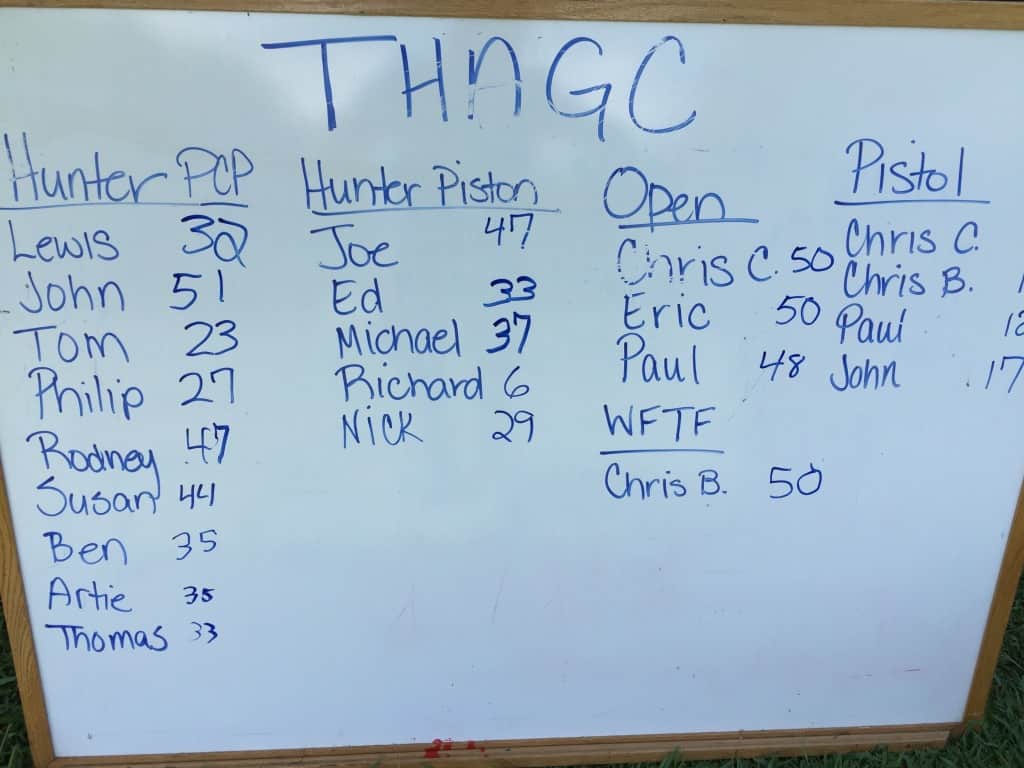 THAGC
Hunter PCP
Lewis 32
John 51
Tom 23
Philip 27
Rodney 47
Susan 44
Ben 35
Artie 35
Thomas 33
Hunter Piston
Joe 47
Ed 33
Michael 37
Richard 6
Nick 29
Open
Chris C. 50
Eric 50
Paul 48
WFTF
Chris B. 50
Pistol
Chris C.
Chris B.
Paul
John 17